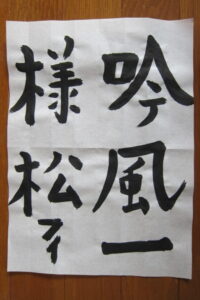 吟風一
様松